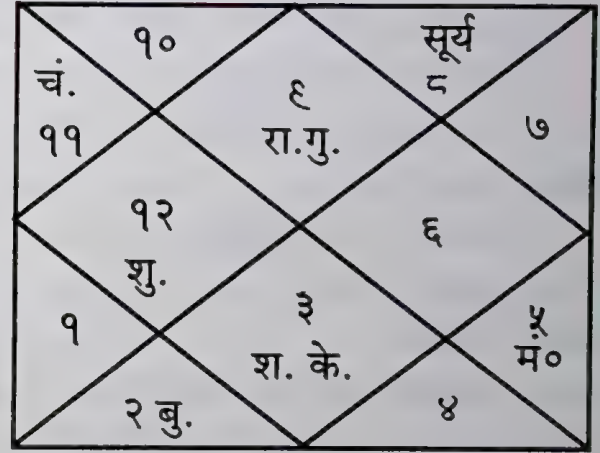 १०
सूर्य
८
चं.
११
९
रा.गु.
७
१२
शु.
६
१
३
श. के.
५
मं०
२ बु.
४